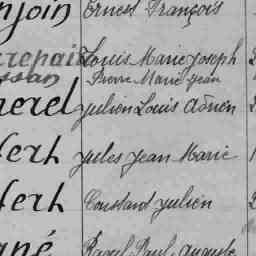 njoin Ernest François
repair Louis Marie Joseph
ssan Pierre Marie Jean
nerel Julien Louis Adrien
ferh Jules Jean Marie
ferh Constant Julien
ané Raoul Paul Auguste